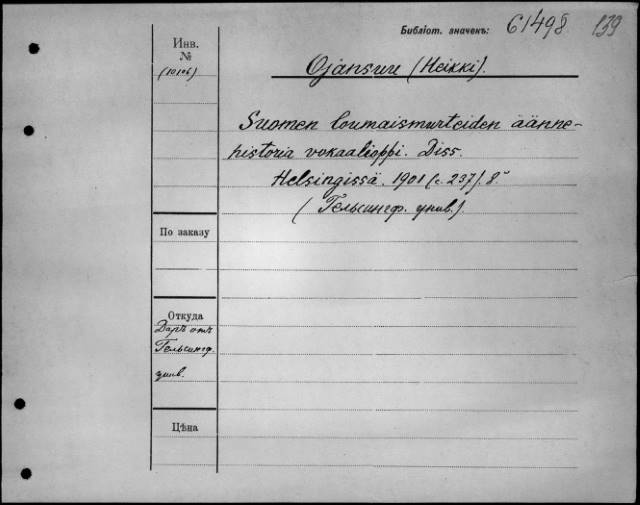 Библіот. значекъ: 61498 139
Инв.
№
(10106)
Ojansuu (Heikki).
Suomen lounaismurteiden äänne-
historia vokaalioppi. Diss.
Helsingissä. 1901 (с. 237). 8°
(Гельсингф. унив.).
По заказу
Откуда
Даръ отъ
Гельсингф.
унив.
Цѣна